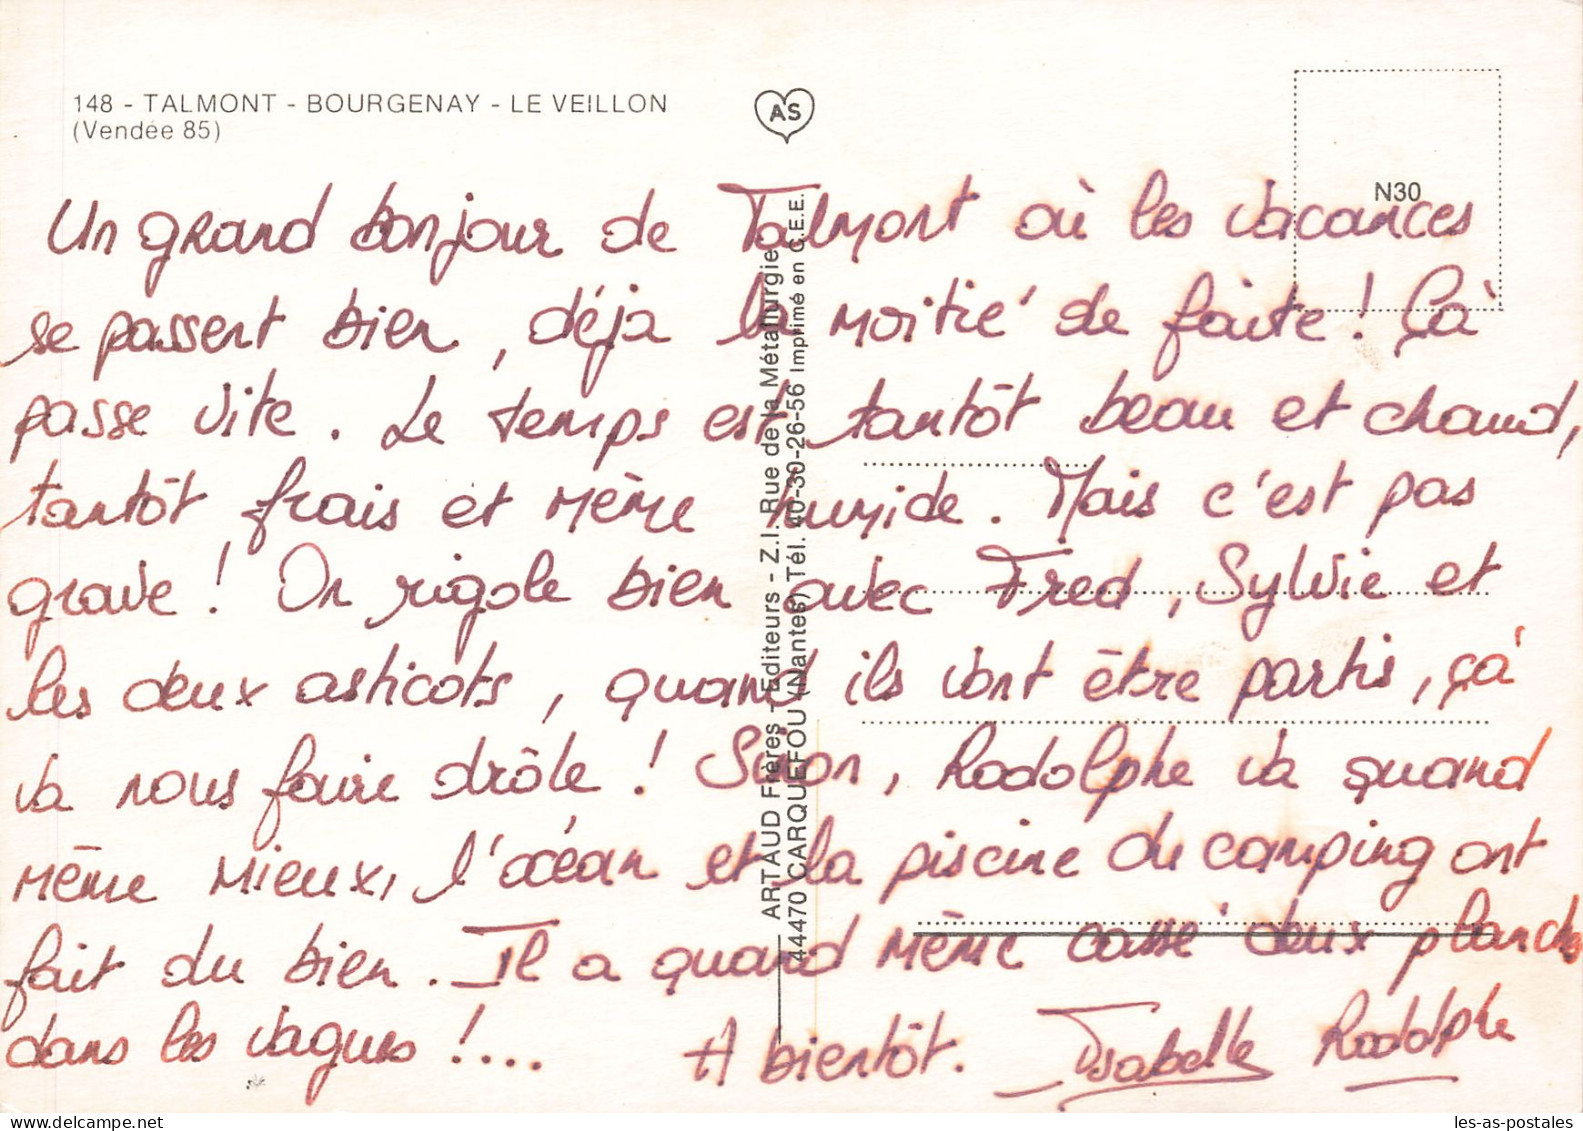 148 - TALMONT - BOURGENAY - LE VEILLON
(Vendée 85)
AS
N30
Un grand bonjour de Talmont où les vacances
se passent bien, déja la moitié de faite ! Çà
passe vite. Le temps est tantôt beau et chaud,
tantôt frais et même humide. Mais c'est pas
grave ! On rigole bien avec Fred, Sylvie et
les deux asticots, quand ils vont être partis, çà
va nous faire drôle ! Sinon, Rodolphe va quand
même mieux, l'océan et la piscine du camping ont
fait du bien. Il a quand même cassé deux planches
dans les vagues !...
A bientôt. Isabelle Rodolphe
ARTAUD Frères - Editeurs - Z.I. Rue de la Métallurgie
44470 CARQUEFOU (Nantes) Tél. 40-30-26-56 Imprimé en C.E.E.
les-as-postales